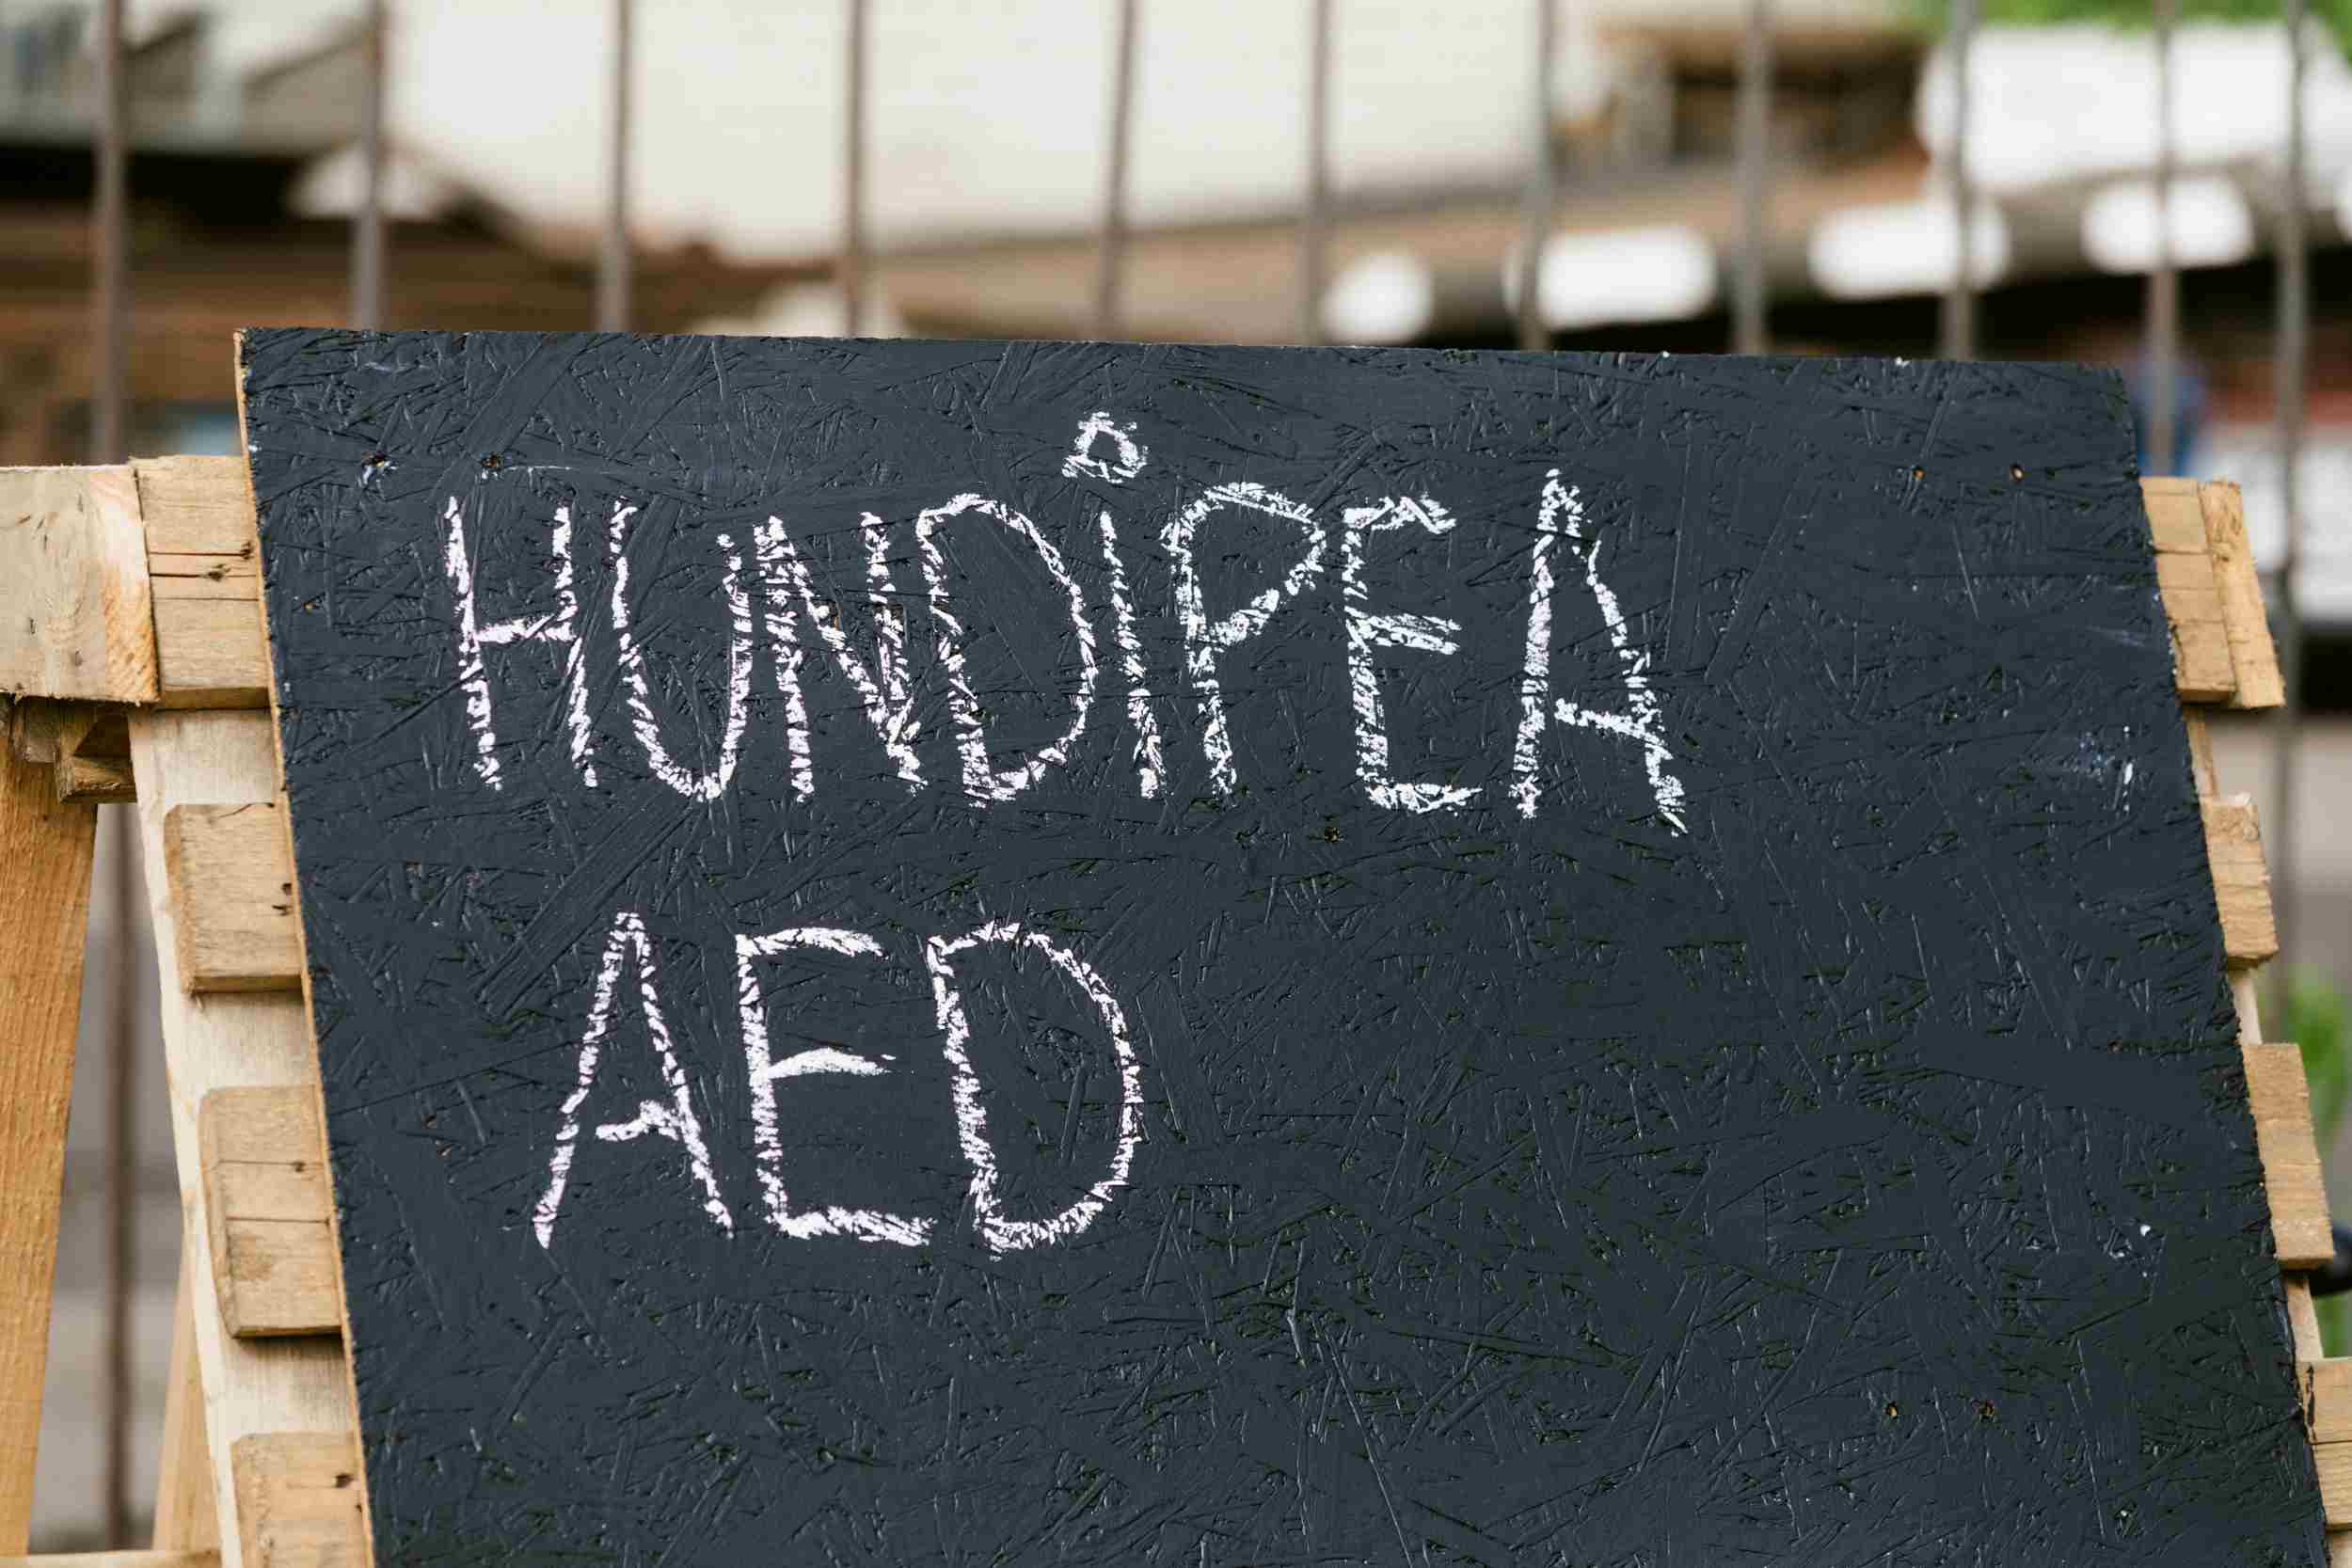 HUNDiPEA
AED